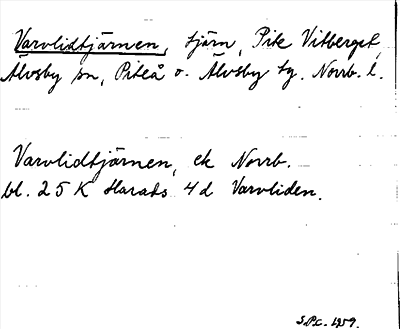 Varvlidtjärnen, tjärn, Pite Vitberget,
Älvsby sn, Piteå o. Älvsby tg. Norrb. l.
Varvlidtjärnen, ek Norrb.
bl. 25 K Harads 4 d Varvliden.
S.P.C. 1959.